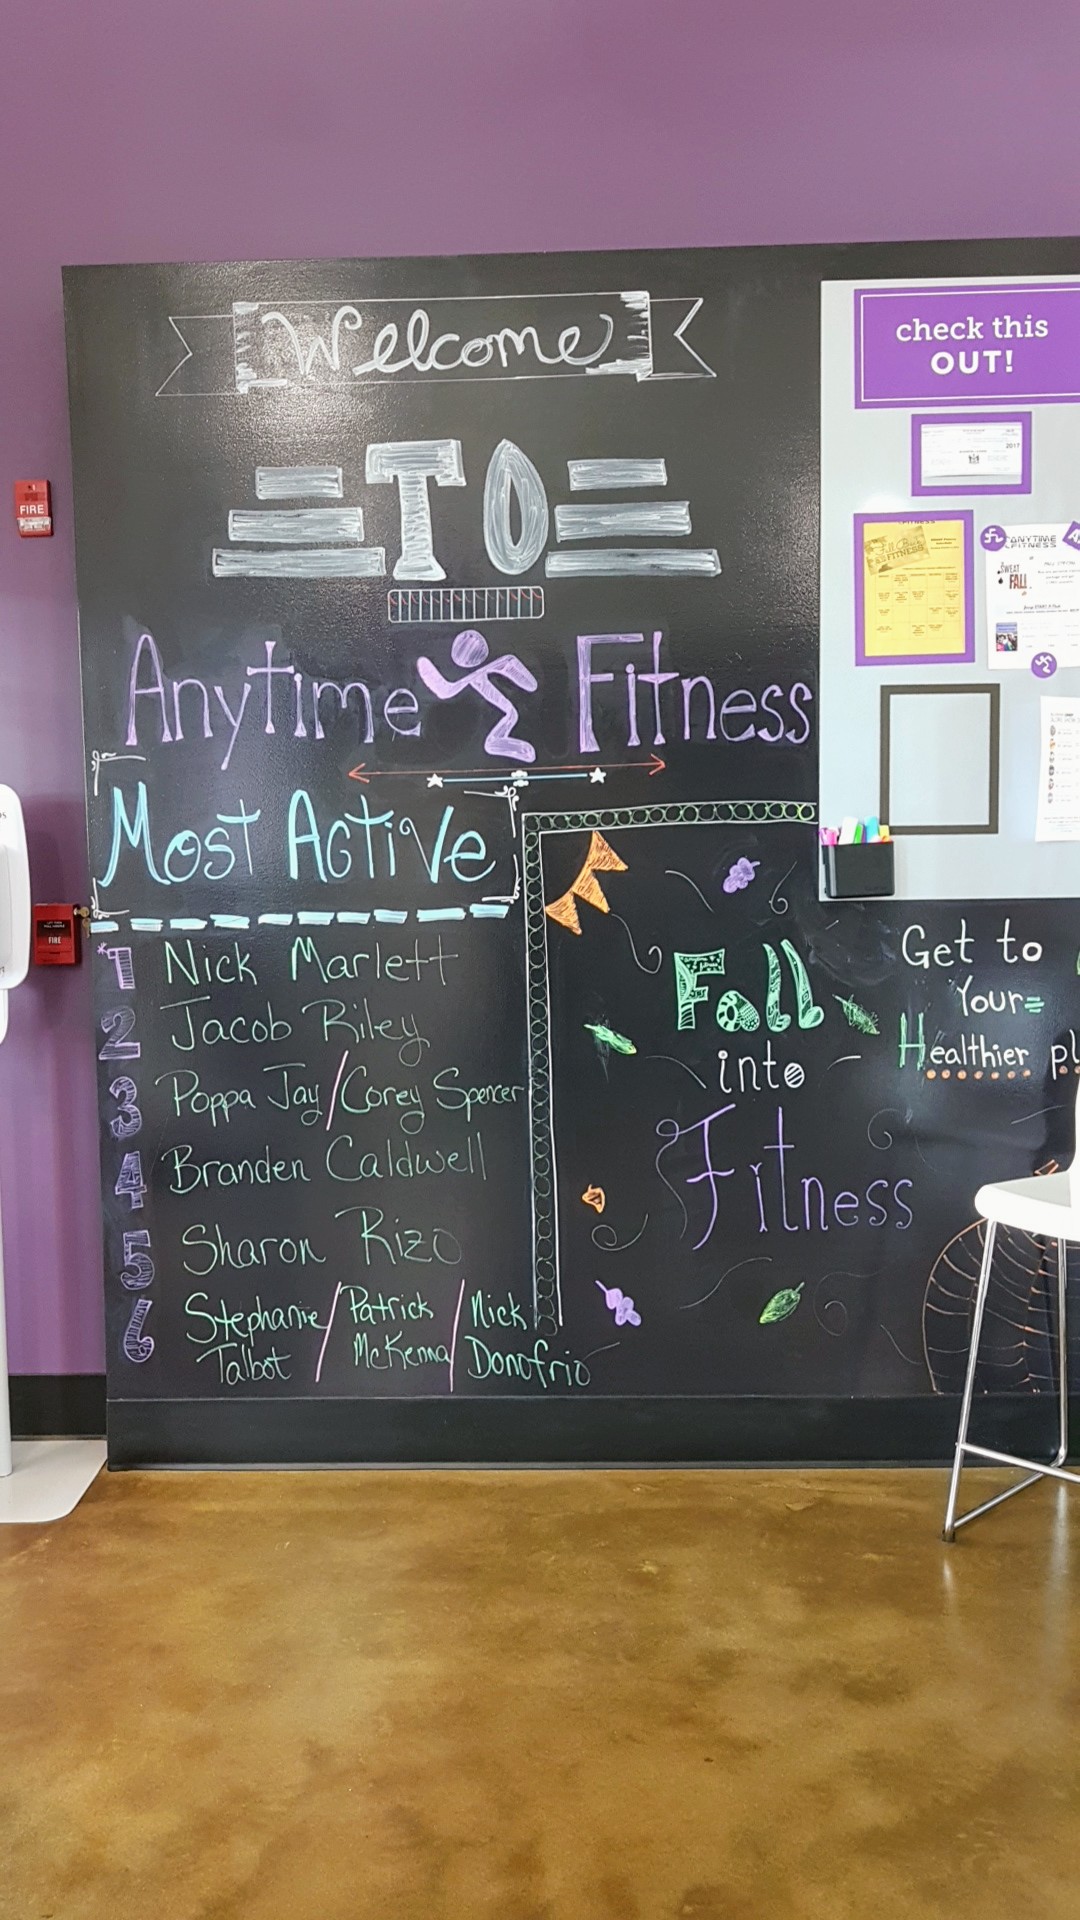 Welcome
TO
Anytime Fitness
Most Active
*1 Nick Marlett
2 Jacob Riley
3 Poppa Jay/Corey Spencer
4 Branden Caldwell
5 Sharon Rizo
6 Stephanie/Patrick/Nick
Talbot McKenna Donofrio
Fall
into
Fitness
Get to
Your
Healthier pl
check this
OUT!
2017
FITNESS
ANYTIME
FITNESS
SWEAT
FALL
FIRE
FIRE